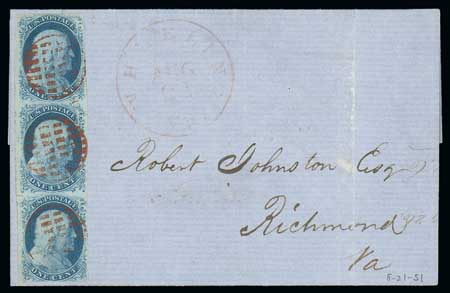 U.S. POSTAGE
ONE CENT
U.S. POSTAGE
ONE CENT
U.S. POSTAGE
ONE CENT
AUG
Robert Johnston Esq
Richmond
Va
8-21-51